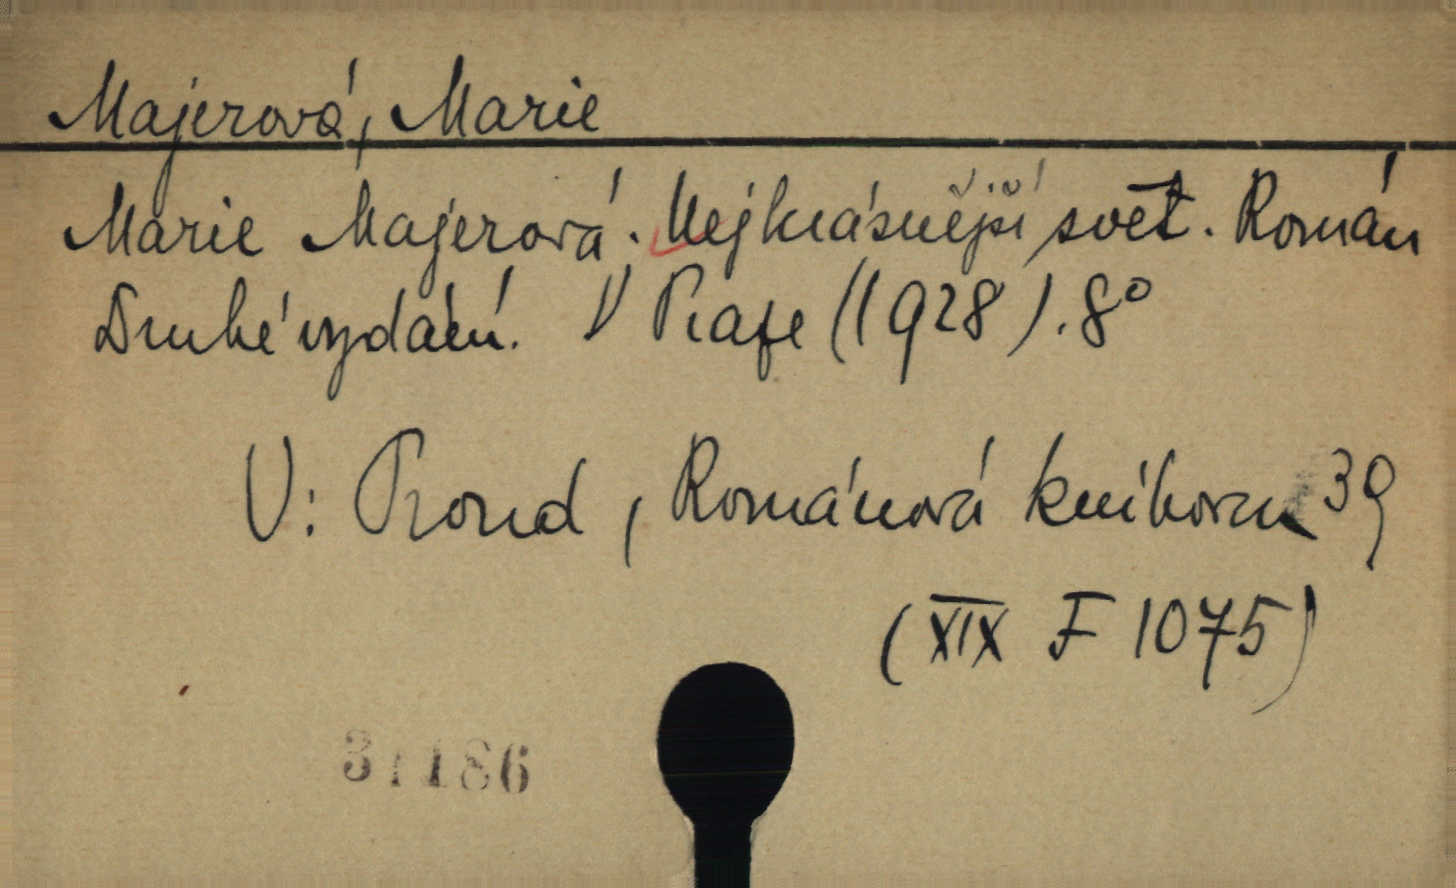 Majerová, Marie
Marie Majerová. Nejkrásnější svět. Román
Druhé vydání. V Praze (1928). 8°
V: Proud, Románová knihovna 39
(XIX F 1075)
31186